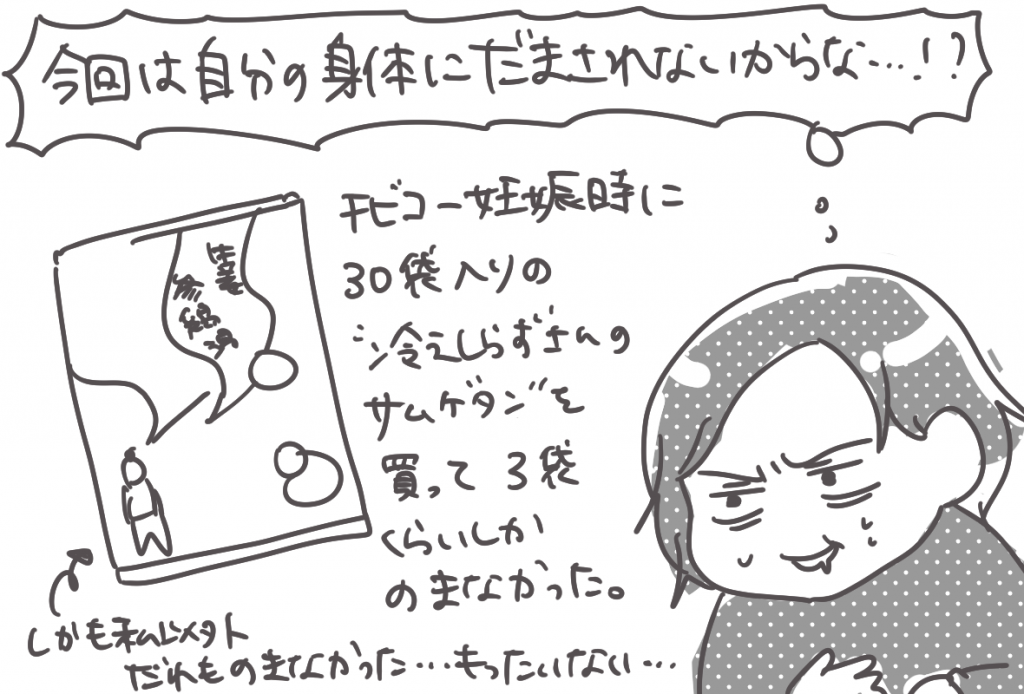 今回は自分の身体にだまされないからな…!?
チビコー妊娠時に
30袋入りの
冷えしらずさんの
サムゲタンを
買って 3袋
くらいしか
のまなかった。
生姜
参鶏湯
しかも私以外
だれものまなかった…もったいない…